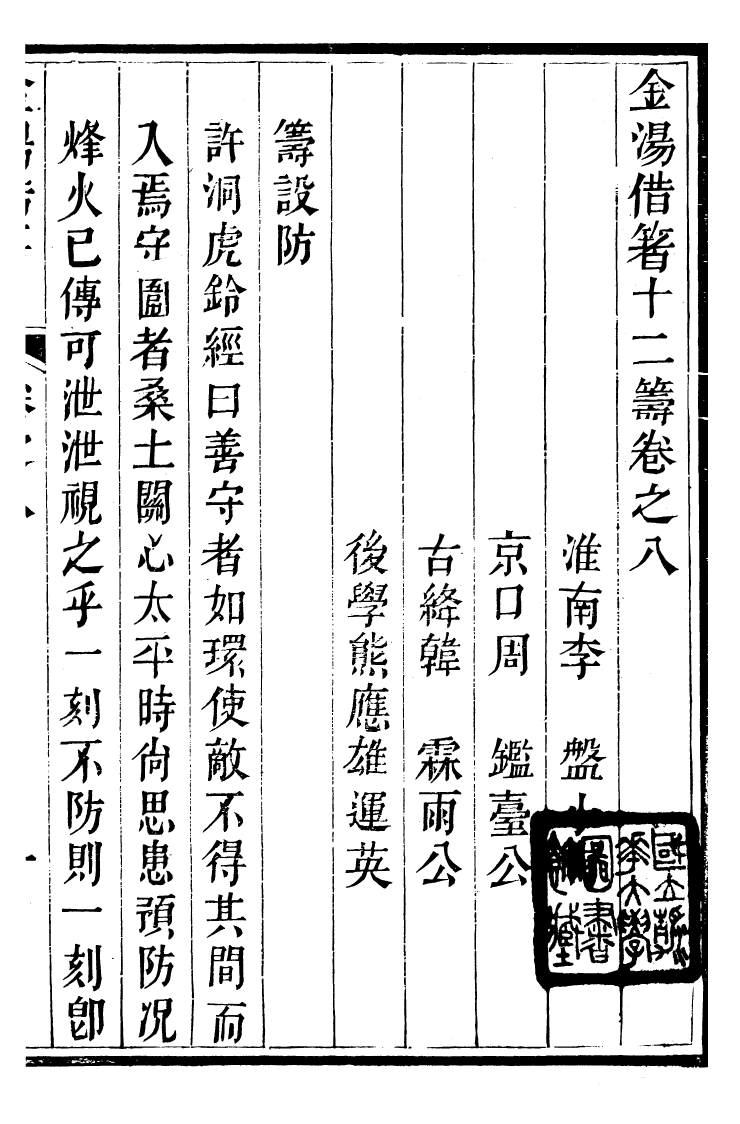 金湯借箸十二籌卷之八
淮南李　盤小
京口周　鑑臺公
古絳韓　霖雨公
後學熊應雄運英
籌設防
許洞虎鈴經曰善守者如環使敵不得其間而
入焉守圉者桑土關心太平時尚思患預防况
烽火已傳可泄泄視之乎一刻不防則一刻卽
國立清華大學
圖書館藏